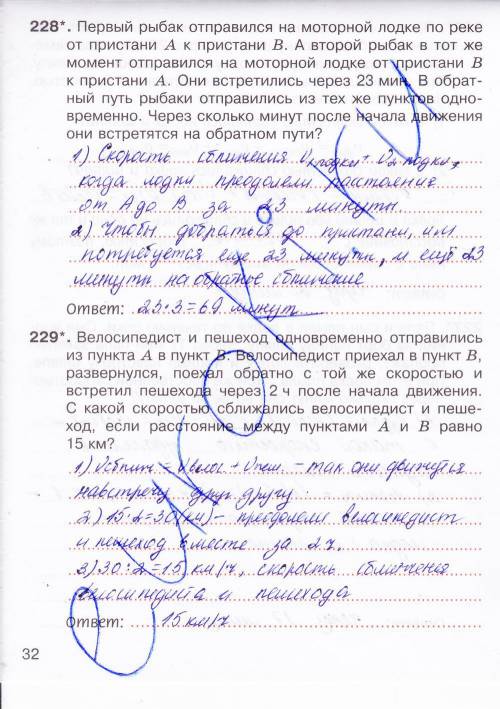 228*. Первый рыбак отправился на моторной лодке по реке
от пристани А к пристани В. А второй рыбак в тот же
момент отправился на моторной лодке от пристани В
к пристани А. Они встретились через 23 мин. В обрат-
ный путь рыбаки отправились из тех же пунктов одно-
временно. Через сколько минут после начала движения
они встретятся на обратном пути?
1) Скорость сближения V₁лодки + V₂ лодки,
когда лодки преодолели расстояние
от А до В за 23 минуты
2) Чтобы добраться до пристани, им
потребуется еще 23 минуты, и ещё 23
минуты на обратное сближение
Ответ: 23·3=69 минут
229*. Велосипедист и пешеход одновременно отправились
из пункта А в пункт В. Велосипедист приехал в пункт В,
развернулся, поехал обратно с той же скоростью и
встретил пешехода через 2 ч после начала движения.
С какой скоростью сближались велосипедист и пеше-
ход, если расстояние между пунктами А и В равно
15 км?
1) Vсближ = Vвелос + Vпеш. – так они движутся
навстречу друг другу
2) 15·2=30(км) – преодолели велосипедист
и пешеход вместе за 2 ч.
3) 30:2=15 км/ч, скорость сближения
велосипедиста и пешехода
Ответ: 15 км/ч
32